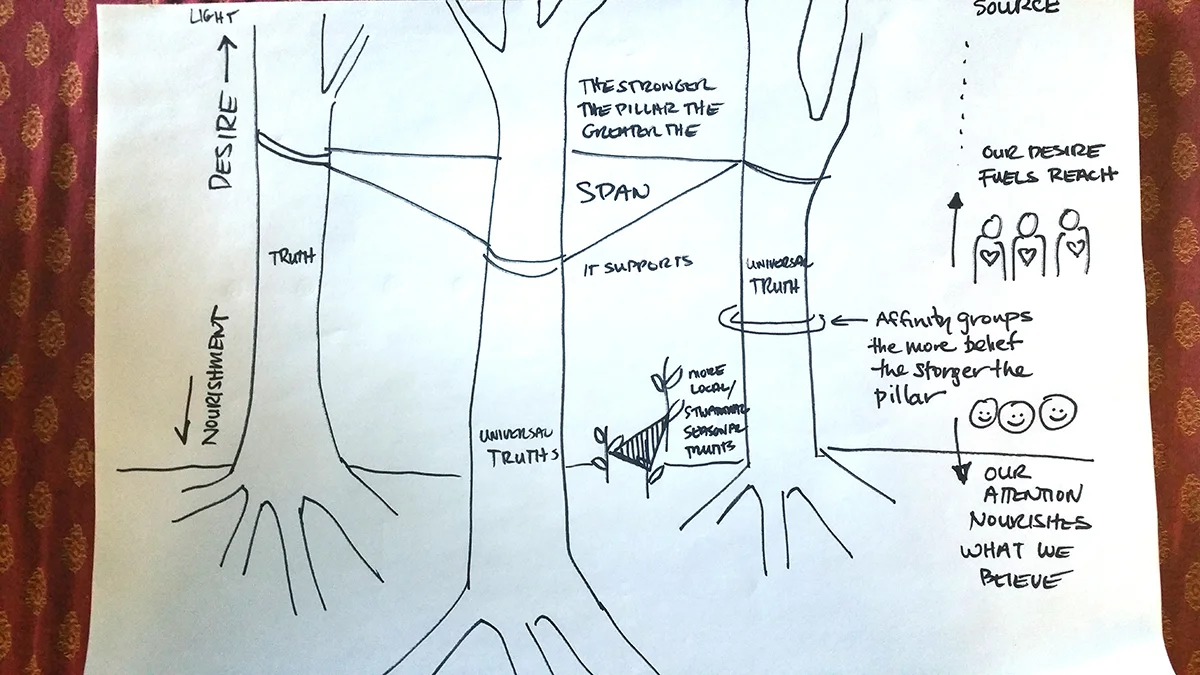 LIGHT
DESIRE
NOURISHMENT
TRUTH
THE STRONGER
THE PILLAR THE
GREATER THE
SPAN
IT SUPPORTS
UNIVERSAL
TRUTHS
MORE
LOCAL/
SEASONAL
TRUTHS
UNIVERSAL
TRUTH
SOURCE
OUR DESIRE
FUELS REACH
Affinity groups
the more belief
the stonger the
pillar
OUR
ATTENTION
NOURISHES
WHAT WE
BELIEVE